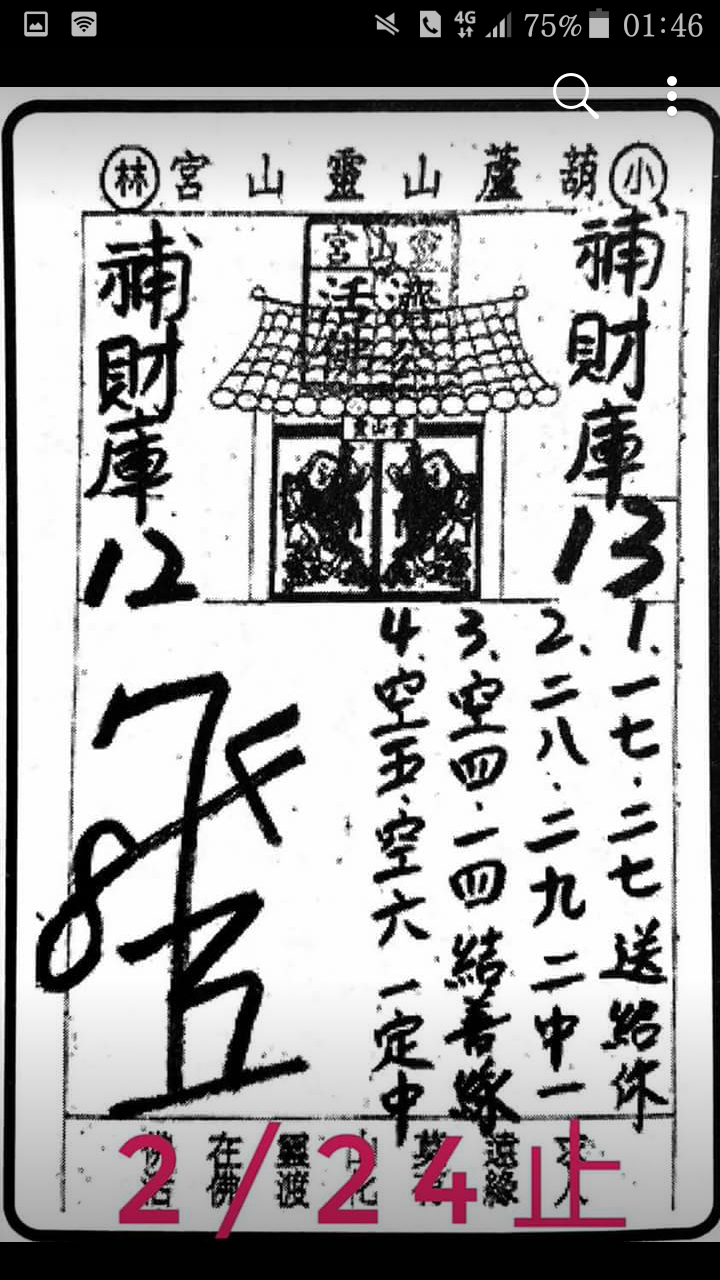 4G 75% 01:46
小葫蘆山靈山宮林
靈山宮
濟公
活佛
靈山宮
補財庫
13
補財庫
12
1.一七.二七送給你
2.二八.二九二中一
3.空四.一四結善緣
4.空五.空六一定中
2/24止